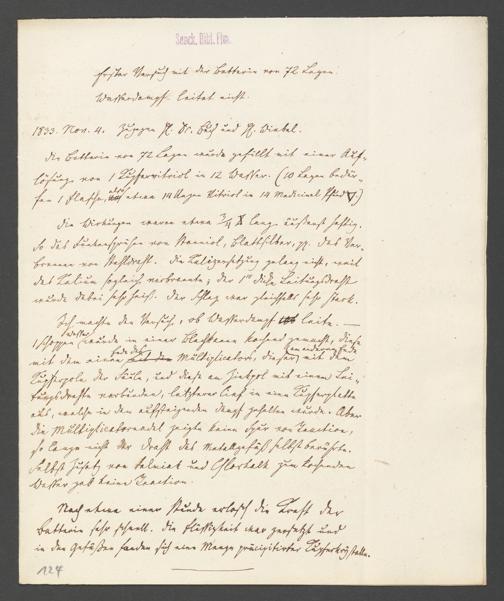 Senck. Bibl. Ffm.
Erster Versuch mit der Batterie von 72 Lagen.
Wasserdampf leitet nicht.
1833. Nov. 4. Zugegen H. Dr. und H.
Die Batterie von 72 Lagen wurde gefüllt mit einer Auf-
lösung von 1 Kupfervitriol in 12 Wasser. (10 Lagen bedür-
fen 1 Flasche, oder etwa 14 Unzen Vitriol in 14 Medicinal)
Die Wirkungen waren etwa lang äußerst heftig.
So das Funkensprühen von Stanniol, Blattsilber, pp. das Ver-
brennen von Stahldraht. Die Kalizersetzung gelang nicht, weil
das Kalium sogleich verbrannte; der dicke Leitungsdraht
wurde dabei sehr heiß. Der Schlag war gleichfalls sehr stark.
Ich machte den Versuch, ob Wasserdampf leite. —
1 Schoppen Wasser wurde in einer blechernen kochend gemacht, diese
mit dem einen Ende des Multiplicators, dieser am anderen Ende mit dem
Kupferpole der Säule, und diese am Zinkpol mit einem Lei-
tungsdrahte verbunden, letzterer lief in eine Kupferplatte
aus, welche in den aufsteigenden Dampf gehalten wurde. Aber
die Multiplicatornadel zeigte keine Spur von Reaction,
so lange nicht der Draht das Metallgefäß selbst berührte.
Selbst Zusatz von Salmiak und zum kochenden
Wasser gab keine Reaction.
Nach etwa einer Stunde erlosch die Kraft der
Batterie sehr schnell. Die Flüssigkeit war zersetzt und
in den Gefäßen fanden sich eine Menge präcipitirter Kupferkrystalle.
124